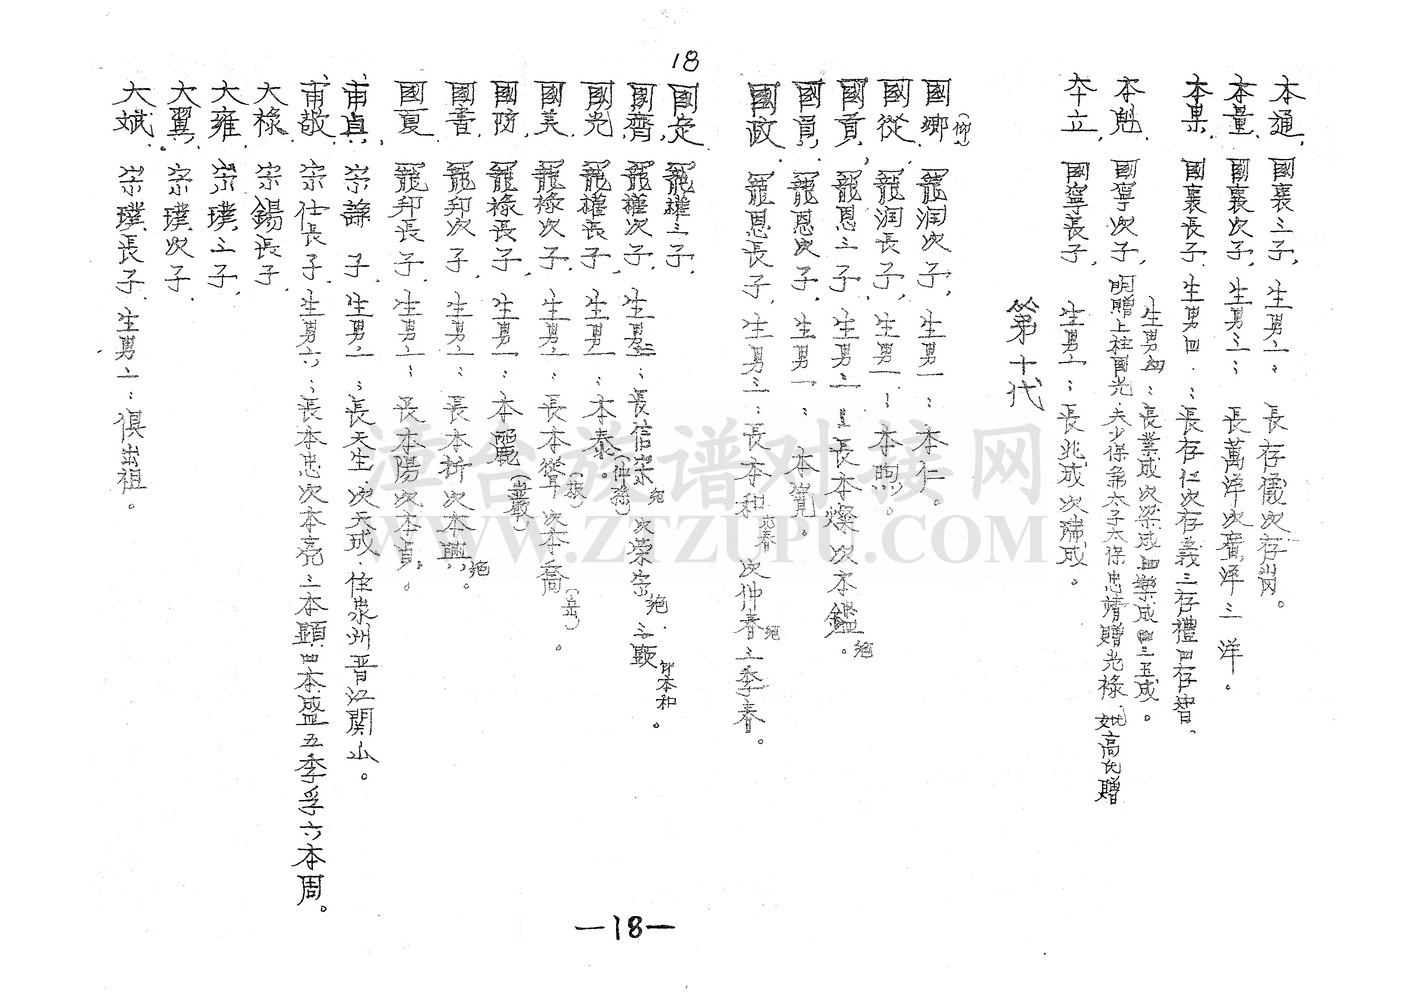 18
國定 寵權三子.
國齊 寵權次子. 生男三:長信榮 絕 次榮宗 絕. 三顯 即本和 。
國光. 寵權長子, 生男一:本泰。(仲孫)
國美. 寵祿次子. 生男二:長本聳(拔)次本喬(岳)。
國防. 寵祿長子, 生男一:本麗(豈嚴)
國書. 寵邦次子, 生男二:長本折次本興, 絕 。
國夏 寵邦長子, 生男二:長本陽次本貞,。
甫貞. 宗謙 子, 生男二:長天生 次天成. 住泉州晋江關山。
甫敬. 宗仕長子, 生男六:長本忠次本亮三本顯四本盛五季孚六本周。
大祿. 宗錫長子.
大雍. 宗璞三子.
大翼. 宗璞次子.
大斌. 宗璞長子. 生男二:俱出祖。
本通. 國襄三子, 生男二: 長存儀次存崗。
本量. 國襄次子, 生男三: 長萬洋次實洋三 洋。
本果. 國襄長子, 生男四:長存仁次存義三存禮四存智、
本魁. 國寧次子, 明贈上柱國光.夫少保兼太子太保忠靖贈光祿 妣高氏贈
生男四:長業成次梁成四樂成三五成。
本立. 國寧長子, 生男二:長兆成次歸成。
第十代
國鄉(仰). 寵润次子, 生男一:本仁。
國從. 寵润長子, 生男一:本煦。
國貢, 寵恩三子, 生男二:長本燦 次本鑑。絕
國賓. 寵恩次子, 生男一:本寬。
國政. 寵恩長子, 生男三:長本和 元春 次仲春 絕 三季春。
—18—
漳台族谱对接网
WWW.ZTZUPU.COM